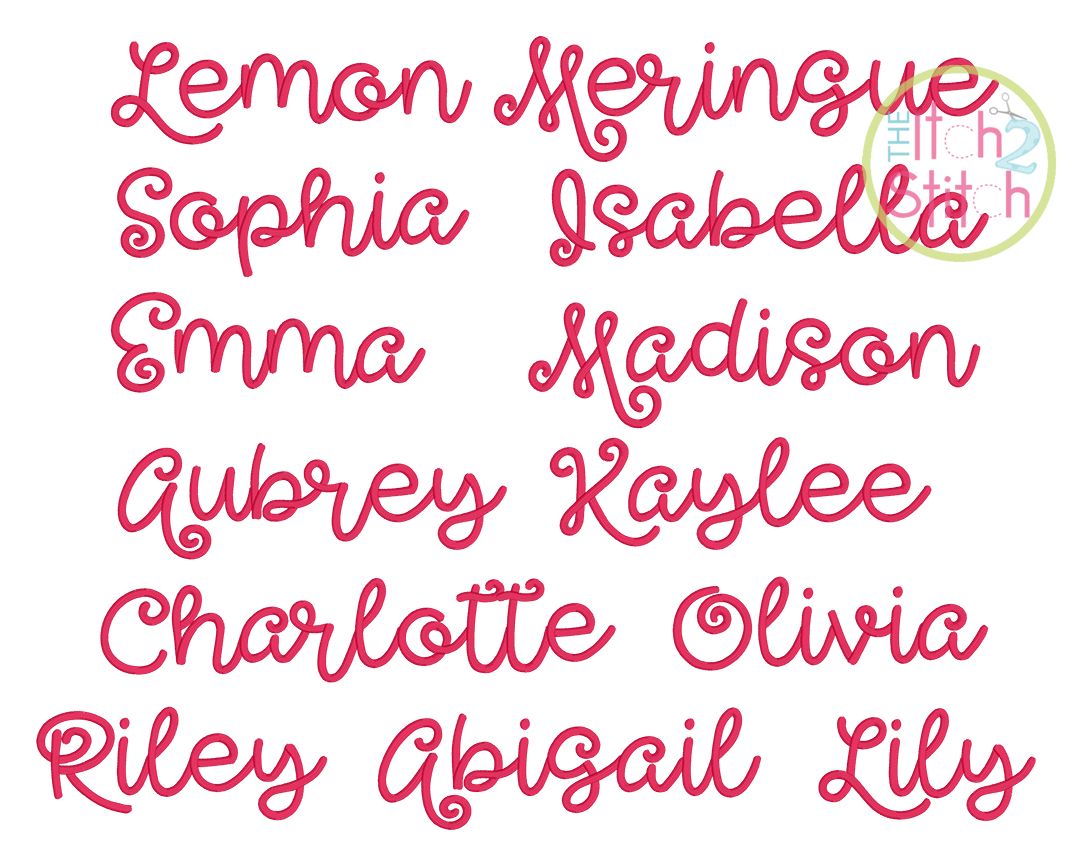 Lemon Meringue
THE Itch 2 Stitch
Sophia Isabella
Emma Madison
Aubrey Kaylee
Charlotte Olivia
Riley Abigail Lily